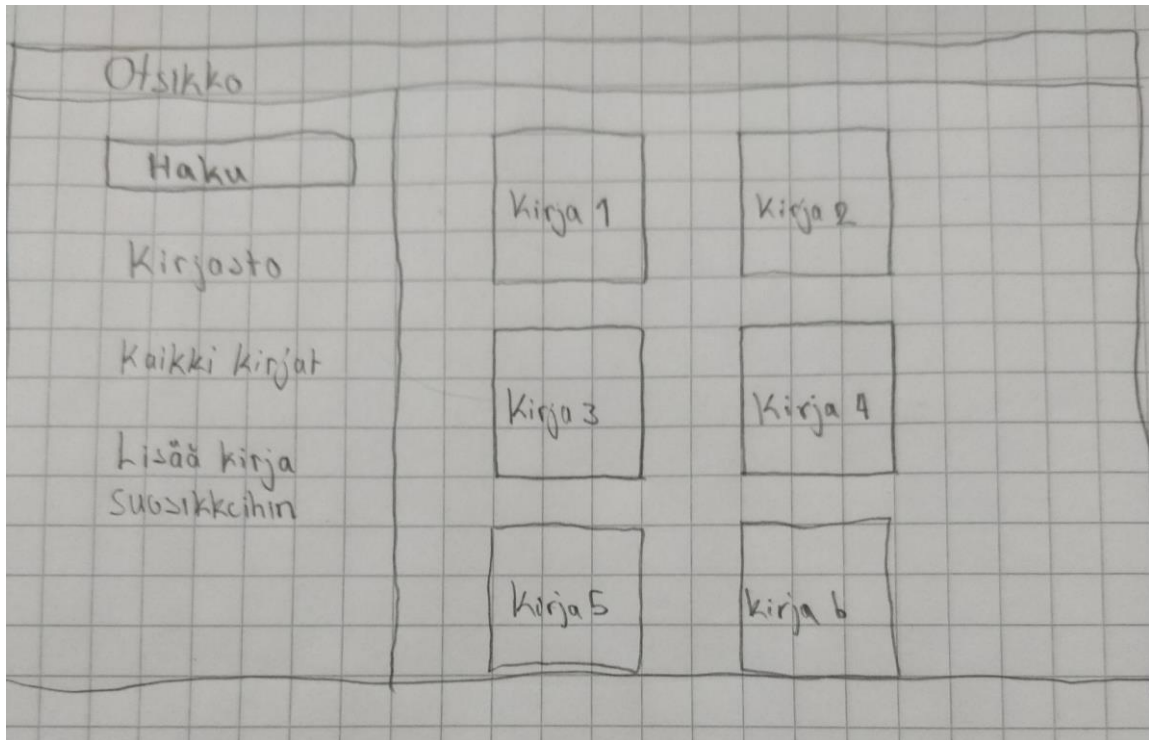 Otsikko
Haku
Kirjasto
Kaikki kirjat
Lisää kirja
suosikkeihin
Kirja 1
Kirja 2
Kirja 3
Kirja 4
Kirja 5
Kirja 6